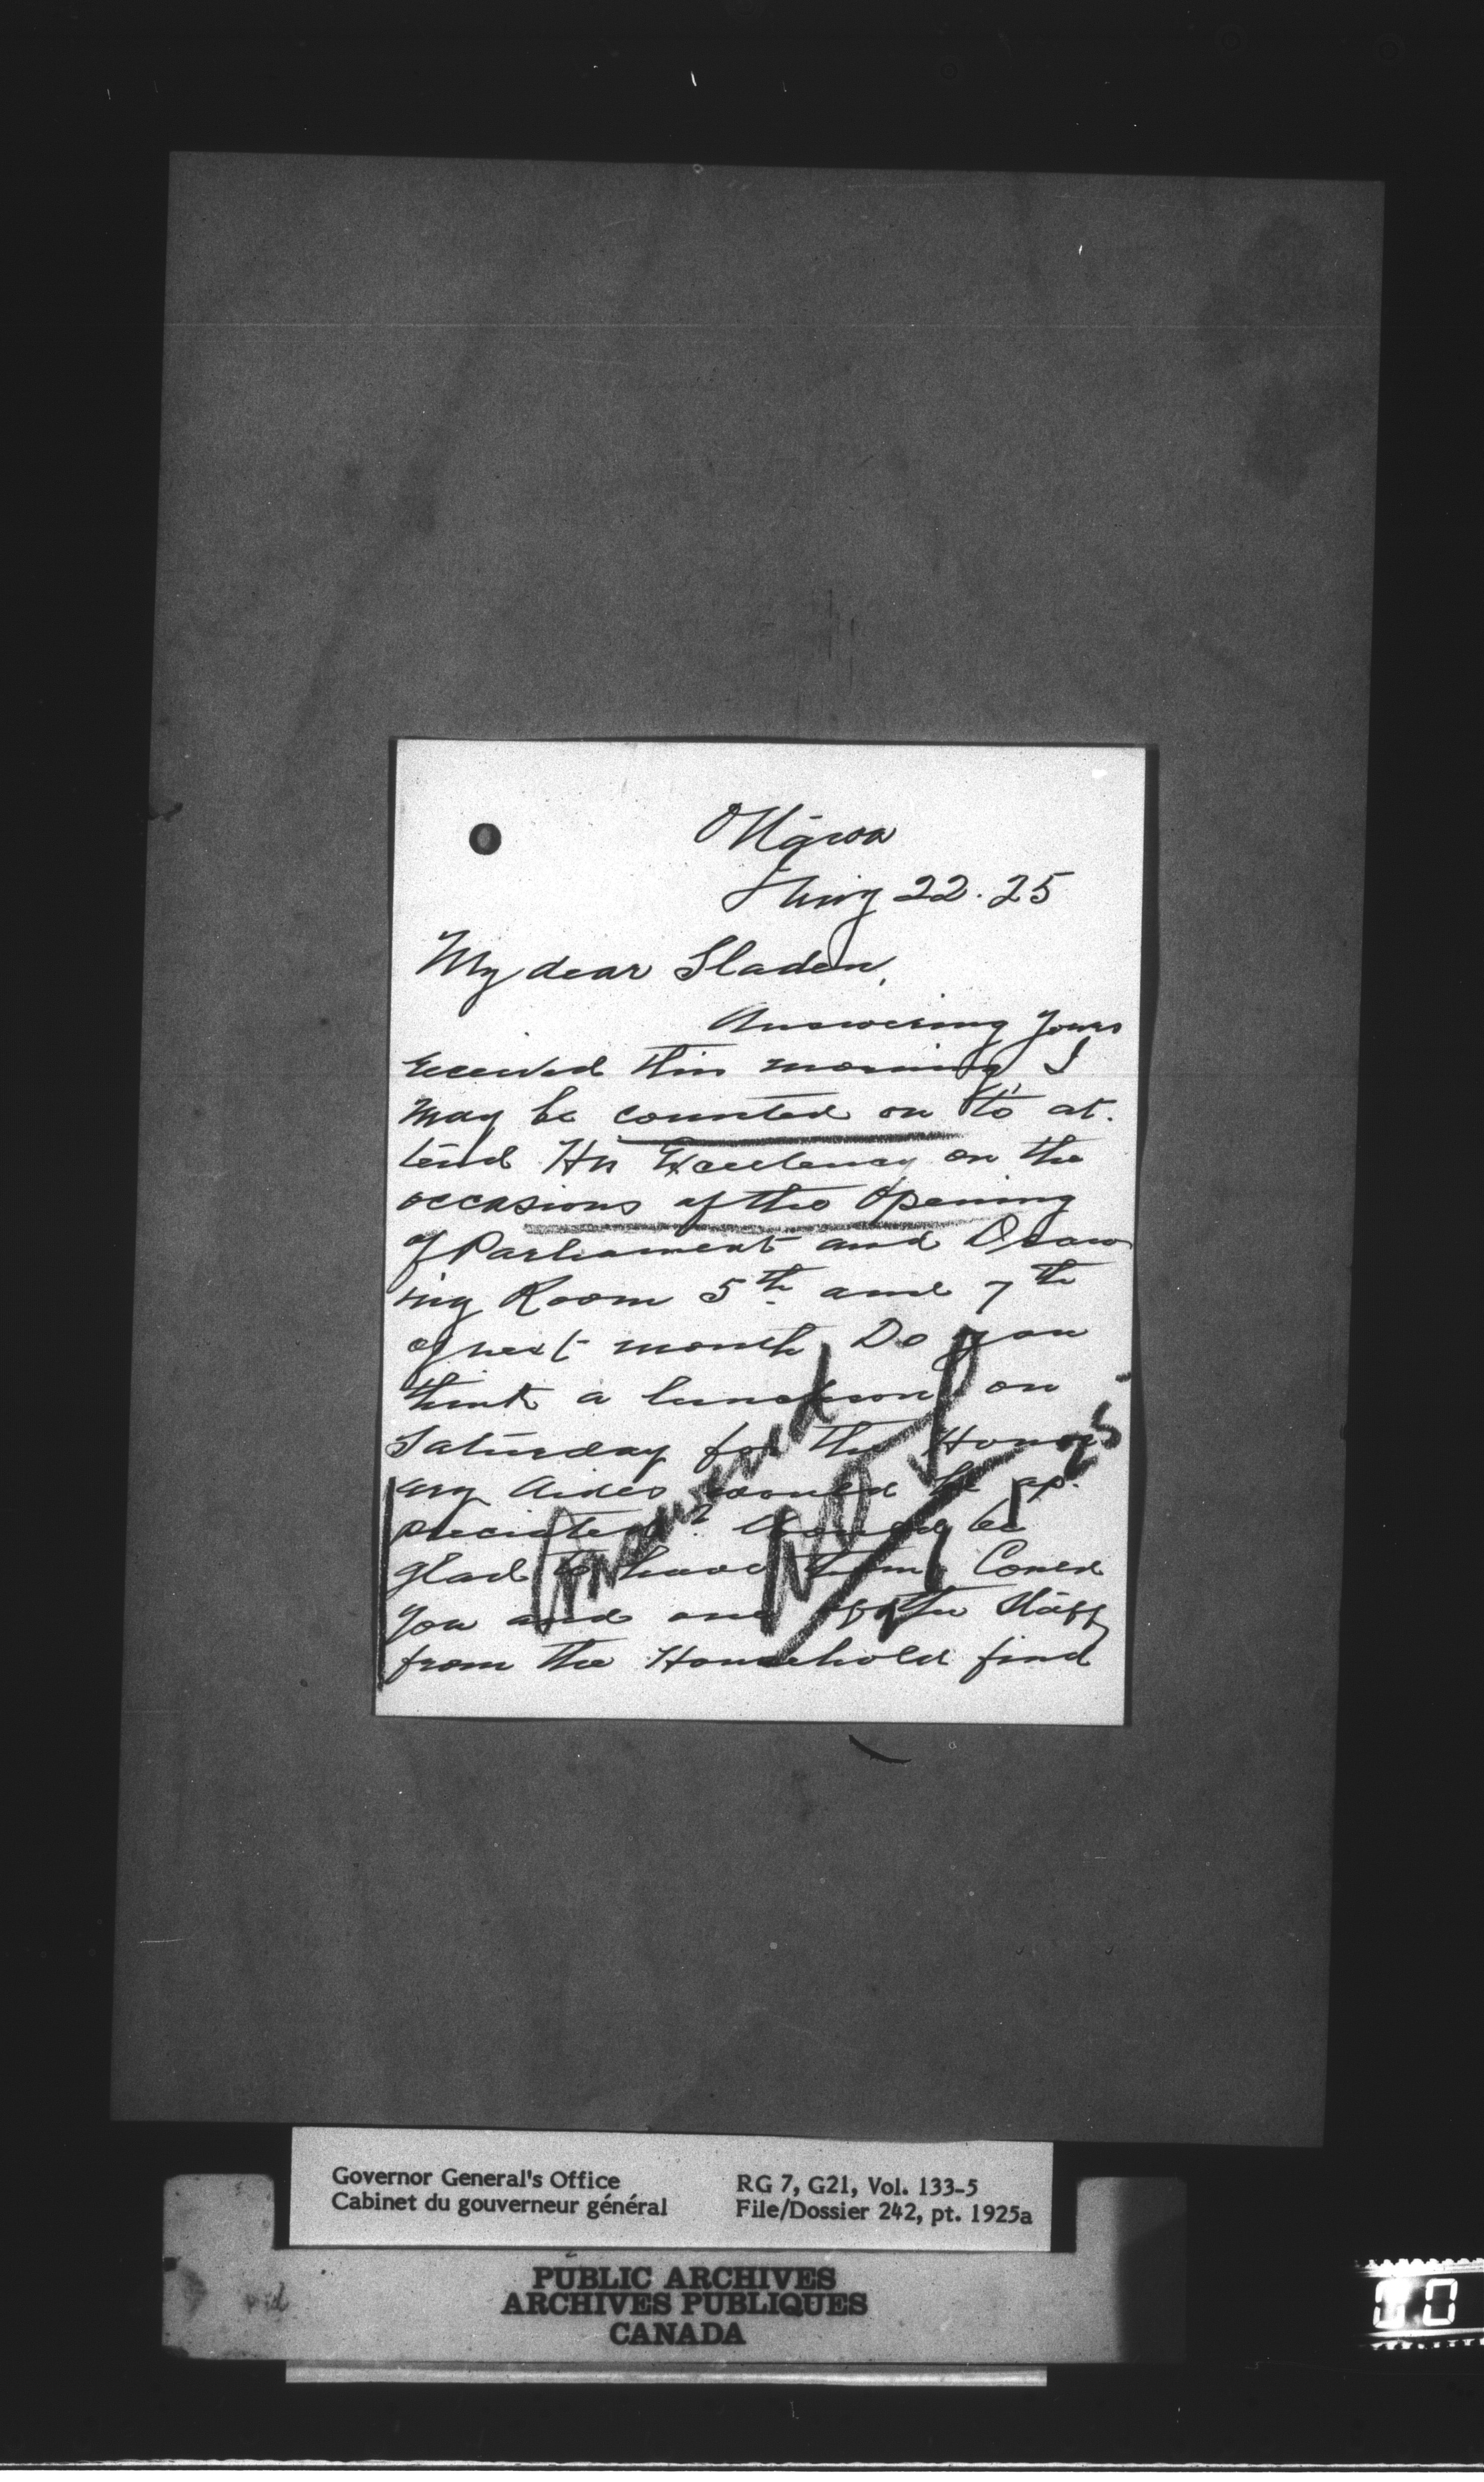 Ottawa
22.25
My dear Sladen,
Answering yours
received this morning I
may be counted on to at.
tend His Excellency on the
occasions of the Opening
of Parliament and Draw
ing Room 5th and 7th
of next month. Do you
think a luncheon on
Saturday for the Honor
ary Aides would be ap.
preciated? Would be
glad to have them. Could
you and one of the Staff
from the Household find
Answered
Governor General's Office
Cabinet du gouverneur général
RG 7, G21, Vol. 133-5
File/Dossier 242, pt. 1925a
PUBLIC ARCHIVES
ARCHIVES PUBLIQUES
CANADA